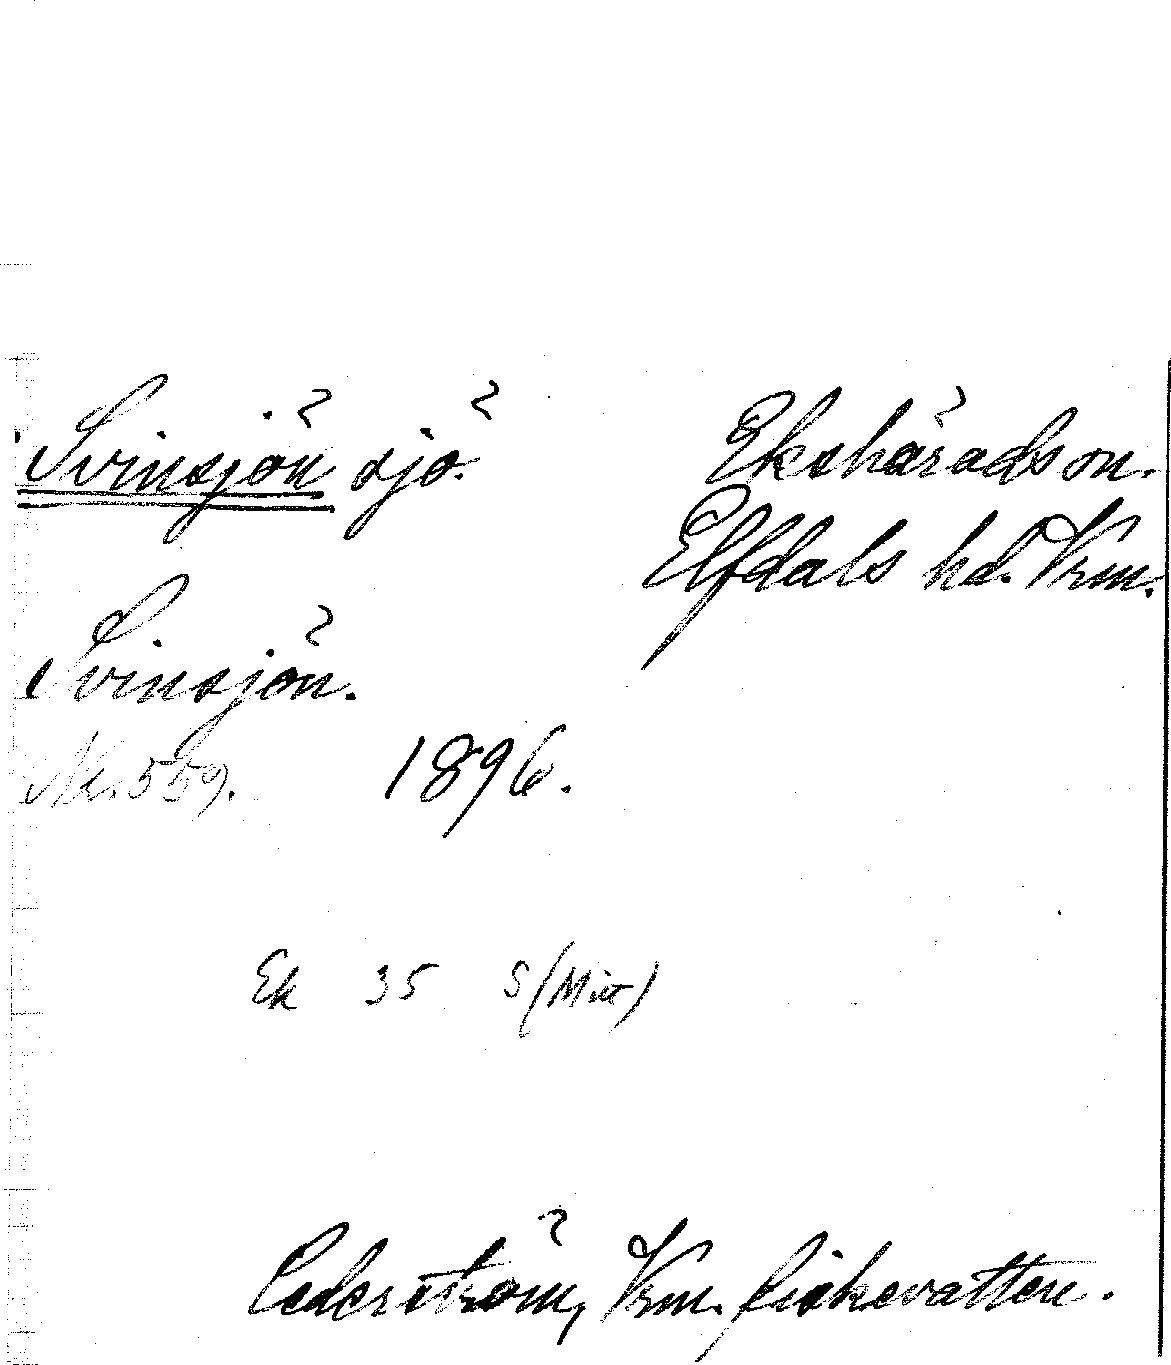 Svinsjön sjö. Ekshärads sn.
Elfdals hd. Vrm.
Svinsjön.
Nr. 559. 1896.
Ek 35 S (Mitt)
Cederström, Vrm. fiskevatten.